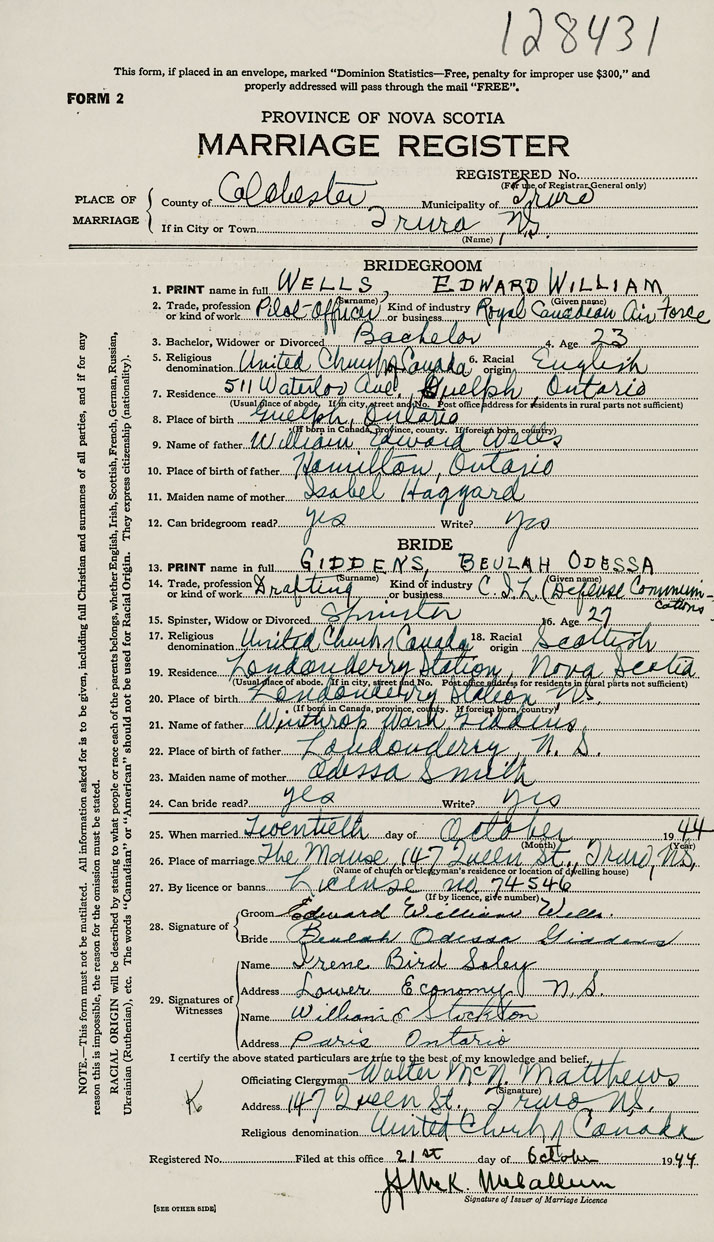 128431
This form, if placed in an envelope, marked "Dominion Statistics—Free, penalty for improper use $300," and
properly addressed will pass through the mail "FREE".
FORM 2
PROVINCE OF NOVA SCOTIA
MARRIAGE REGISTER
REGISTERED No.
(For use of Registrar General only)
PLACE OF MARRIAGE
County of Colchester Municipality of Truro
If in City or Town Truro N.S.
(Name)
BRIDEGROOM
1. PRINT name in full WELLS, EDWARD WILLIAM
(Surname) (Given name)
2. Trade, profession or kind of work Pilot-Officer Kind of industry or business Royal Canadian Air Force
3. Bachelor, Widower or Divorced Bachelor 4. Age 23
5. Religious denomination United Church of Canada 6. Racial origin English
7. Residence 511 Waterloo Ave., Guelph, Ontario
(Usual place of abode. If in city, street and No. Post office address for residents in rural parts not sufficient)
8. Place of birth Guelph, Ontario
(If born in Canada, province, county. If foreign born, country)
9. Name of father William Edward Wells
10. Place of birth of father Hamilton, Ontario
11. Maiden name of mother Isabel Haggard
12. Can bridegroom read? yes Write? yes
BRIDE
13. PRINT name in full GIDDENS, BEULAH ODESSA
(Surname) (Given name)
14. Trade, profession or kind of work Drafting Kind of industry or business C.I.L. (Defense Communications
15. Spinster, Widow or Divorced Spinster 16. Age 27
17. Religious denomination United Church of Canada 18. Racial origin Scottish
19. Residence Londonderry Station, Nova Scotia
(Usual place of abode. If in city, street and No. Post office address for residents in rural parts not sufficient)
20. Place of birth Londonderry Station N.S.
(If born in Canada, province, county. If foreign born, country)
21. Name of father Winthrop Ward Giddens
22. Place of birth of father Londonderry, N.S.
23. Maiden name of mother Odessa Smith
24. Can bride read? yes Write? yes
25. When married Twentieth day of October 1944
(Month) (Year)
26. Place of marriage The Manse, 147 Queen St., Truro, N.S.
(Name of church or clergyman's residence or location of dwelling house)
27. By licence or banns License no. 74546
(If by licence, give number)
28. Signature of
Groom Edward William Wells.
Bride Beulah Odessa Giddens
29. Signatures of Witnesses
Name Irene Bird Soley
Address Lower Economy N.S.
Name William Stockton
Address Paris Ontario
I certify the above stated particulars are true to the best of my knowledge and belief.
Officiating Clergyman Walter McN. Matthews
(Signature)
K
Address 147 Queen St., Truro N.S.
Religious denomination United Church of Canada
Registered No. Filed at this office 21st day of October 1944
McK. McCallum
Signature of Issuer of Marriage Licence
[SEE OTHER SIDE]
NOTE.—This form must not be mutilated. All information asked for is to be given, including full Christian and surnames of all parties, and if for any
reason this is impossible, the reason for the omission must be stated.
RACIAL ORIGIN will be described by stating to what people or race each of the parents belongs, whether English, Irish, Scottish, French, German, Russian,
Ukrainian (Ruthenian), etc. The words "Canadian" or "American" should not be used for Racial Origin. They express citizenship (nationality).